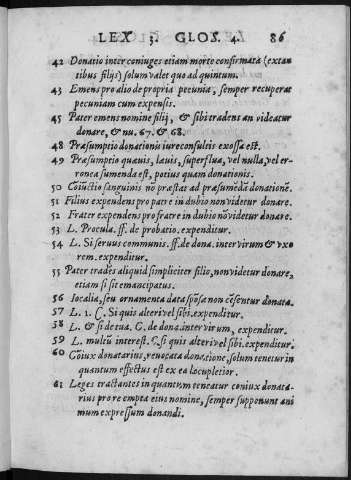 LEX 3. GLOS. 4. 86
42 Donatio inter coniuges etiam morte confirmata (extan
tibus filijs) solum valet quo ad quintum.
43 Emens pro alio de propria pecunia, semper recuperat
pecuniam cum expensis.
45 Pater emens nomine filij, & sibi tradens an videatur
donare, & nu. 67. & 68.
48 Præsumptio donationis iureconsultis exossa est.
49 Præsumptio quauis, lauis, superflua, vel nulla, vel er-
ronea sumenda est, potius quam donationis.
50 Coiũctio sanguinis nõ præstas ad præsumẽdã donationẽ.
51 Filius expendens pro patre in dubio non videtur donare.
52 Frater expendens pro fratre in dubio nõ videtur donare.
53 L. Procula. ff. de probatio. expenditur.
54 L. Si seruus communis. ff. de dona. inter virum & vxo
rem. expenditur.
55 Pater tradẽs aliquid simpliciter filio, non videtur donare,
etiam si sit emancipatus.
56 Iocalia, seu ornamenta data spõsæ non cẽsentur donata.
57 L. 1. C. Si quis alteri vel sibi. expenditur.
58 L. & si de tua. C. de dona. inter virum, expenditur.
59 L. multũ interest. C. si quis alteri vel sibi. expenditur.
60 Cõiux donatarius, reuocata donatione, solum tenetur in
quantum effectus est ex ea locupletior.
61 Leges tractantes in quantum teneatur coniux donata-
rius pro re empta eius nomine, semper supponunt ani
mum expressum donandi.